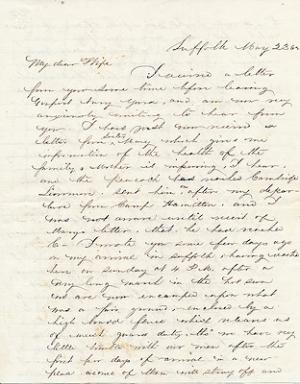 Suffolk May 22
My dear Wife
I received a letter
from you some time before leaving
Newport News Yours, and am now very
anxiously waiting to hear from
you I had just now received a
letter from sister Mary which gives me
information of the health of the
family, Mother is improving I hear
and the peacock has reached Cambridge
sent him after my depar-
ture from Camp Hamilton, and I
was not aware until receipt of
Marys letter, that he had reached
I wrote you some few days ago
on my arrival in Suffolk having reached
here on Sunday at 4 P.M. after a
very long march in the hot sun
and are now encamped upon what
was a fair ground, enclosed by a
high board fence which relieves us
of much guard duty, tho we have very
little trouble with our men after the
first few days of arrival in a new
place some of them will stray off and